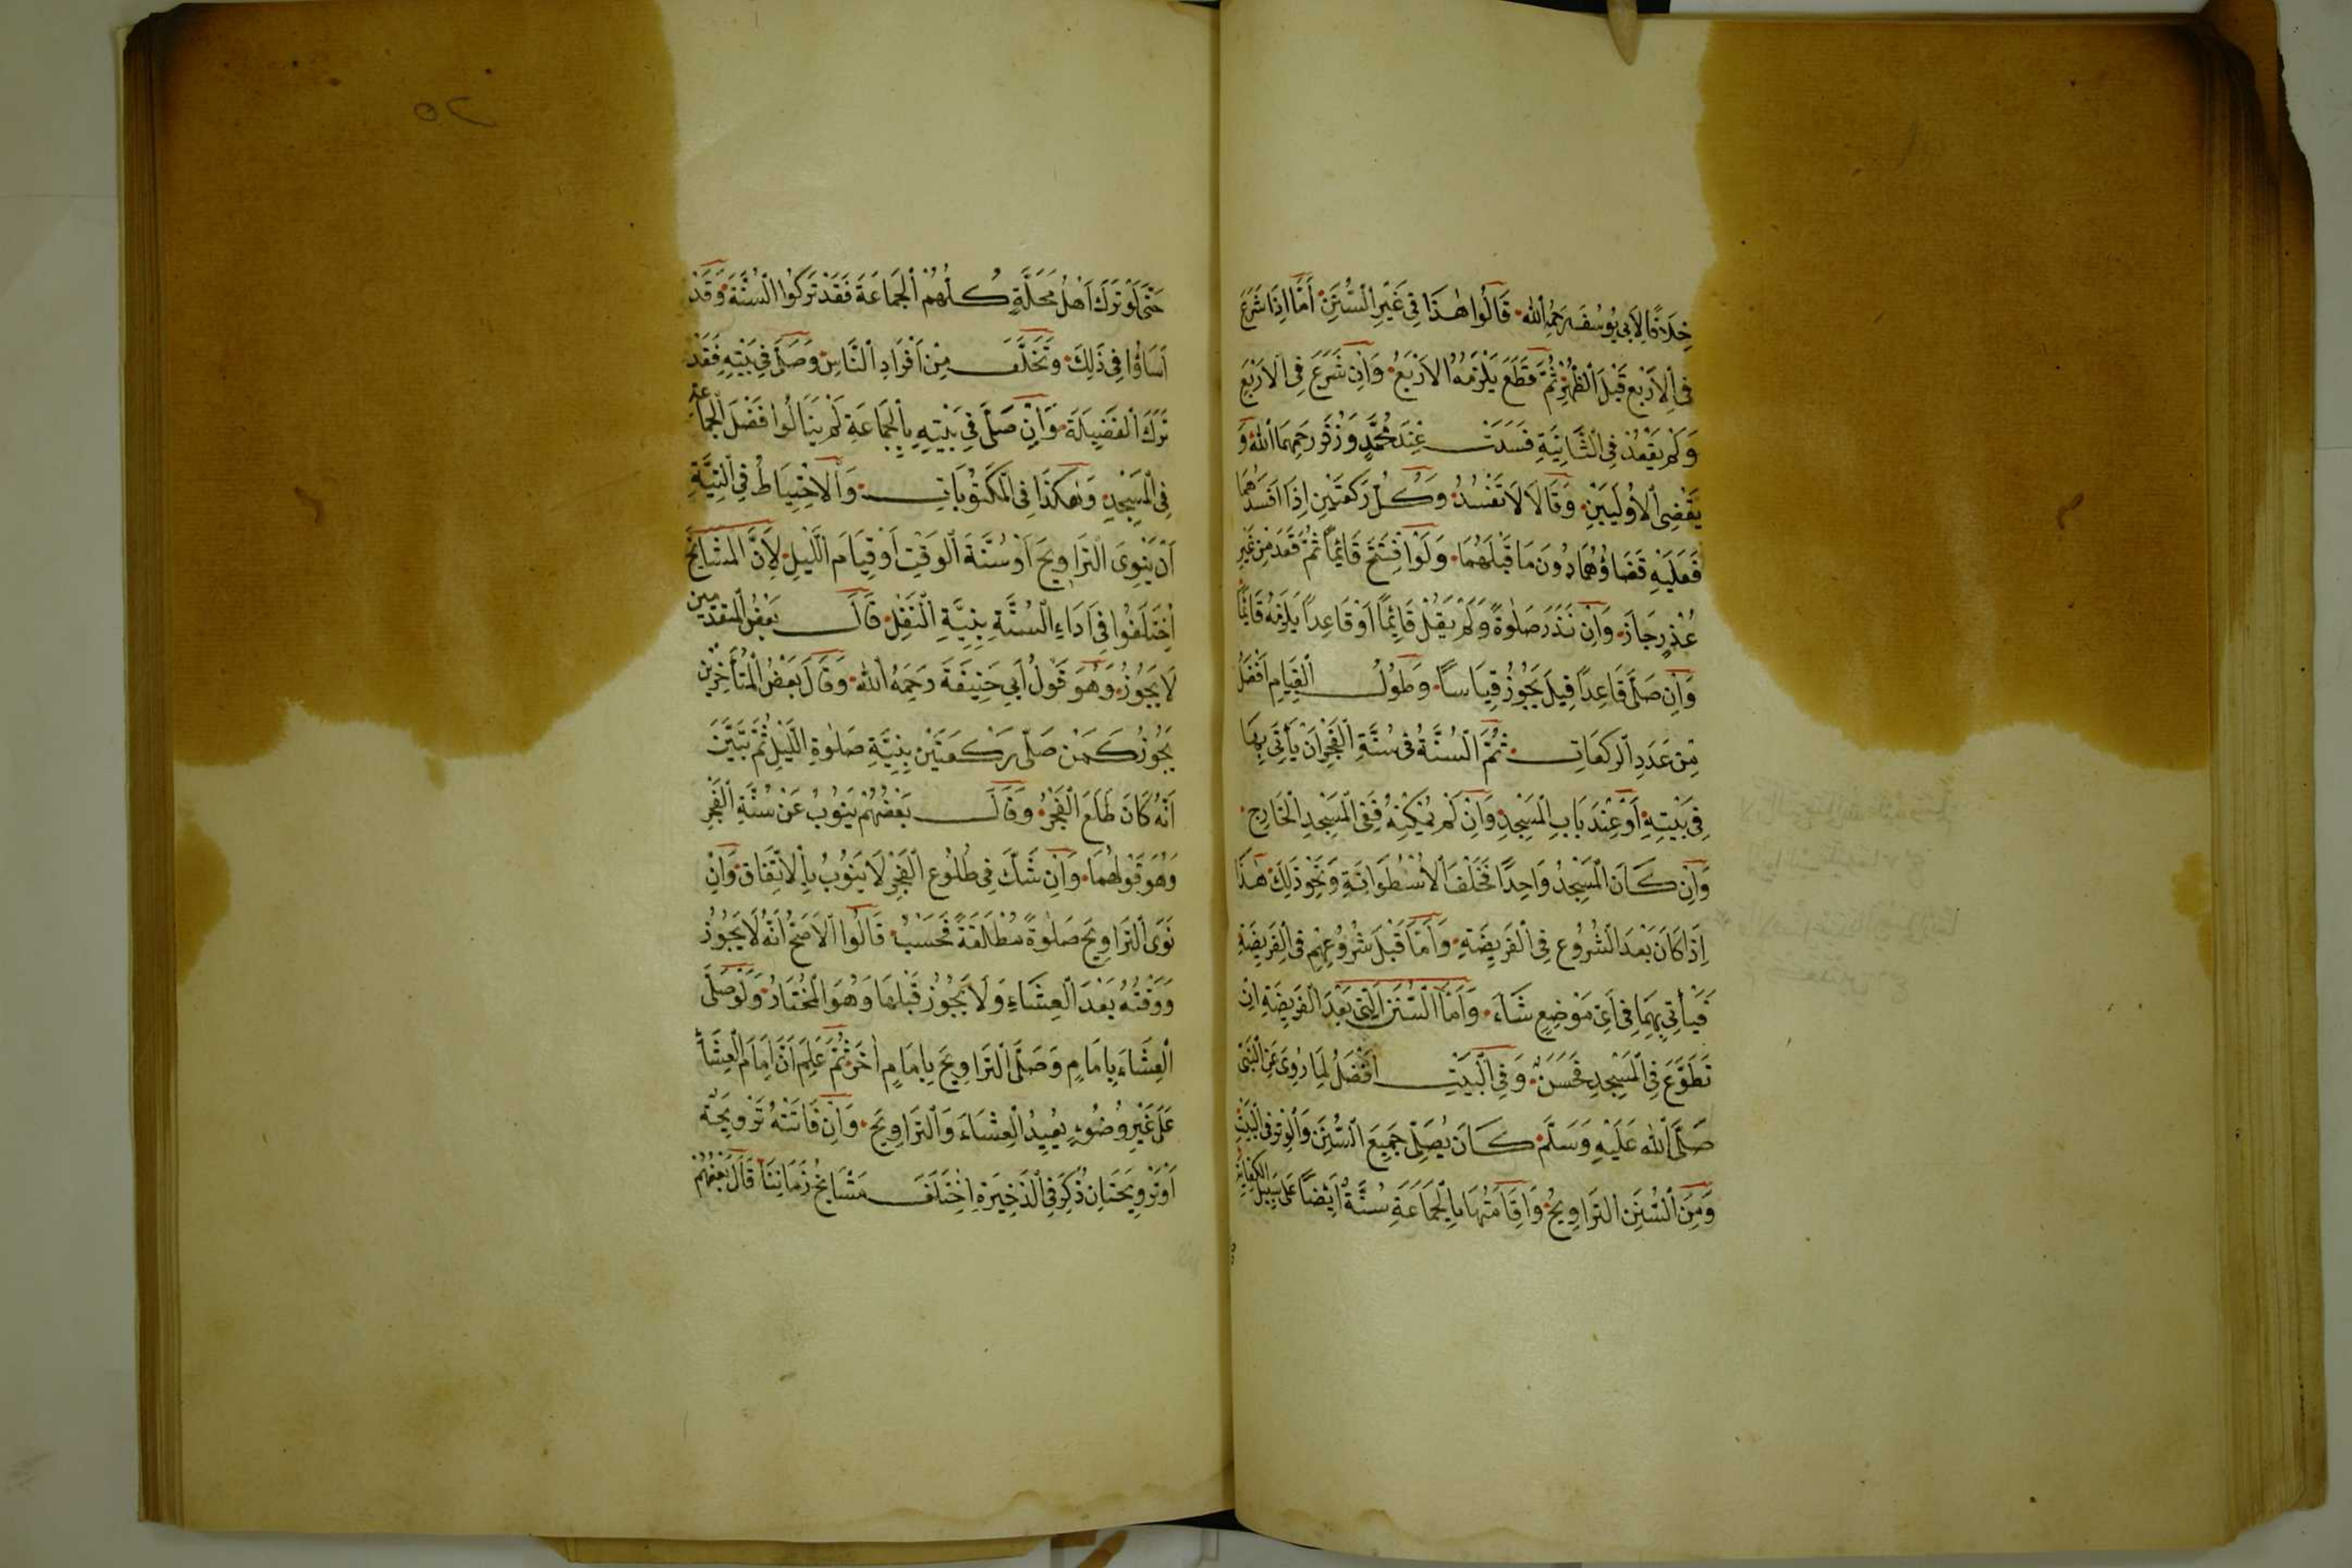 خِلَافًا لِاَبِي يُوسُفَ رَحِمَهُ اللّٰه قَالُوا هٰذَا فِي غَيْرِ السُّنَنِ اَمَّا اِذَا شَرَعَ
فِي الْاَرْبَعِ قَبْلَ الظُّهْرِ ثُمَّ قَطَعَ يَلْزَمُهُ الْاَرْبَعُ وَاِنْ شَرَعَ فِي الْاَرْبَعِ
وَلَمْ يَقْعُدْ فِي الثَّانِيَةِ فَسَدَتْ عِنْدَ مُحَمَّدٍ وَزُفَرَ رَحِمَهُمَا اللّٰهُ وَ
يَقْضِي الْاُولَيَيْنِ وَقَالَا لَا تَفْسُدُ وَكُلُّ رَكْعَتَيْنِ اِذَا اَفْسَدَهُمَا
فَعَلَيْهِ قَضَاؤُهُمَا دُونَ مَا قَبْلَهُمَا وَلَوْ افْتَتَحَ قَائِمًا ثُمَّ قَعَدَ مِنْ غَيْرِ
عُذْرٍ جَازَ وَاِنْ نَذَرَ صَلٰوةً وَلَمْ يَقُلْ قَائِمًا اَوْ قَاعِدًا يَلْزَمُهُ قَائِمًا
وَاِنْ صَلَّى قَاعِدًا قِيلَ يَجُوزُ قِيَاسًا وَطُولُ الْقِيَامِ اَفْضَلُ
مِنْ عَدَدِ الرَّكَعَاتِ ثُمَّ السُّنَّةُ فِي سُنَّةِ الْفَجْرِ اَنْ يَأْتِيَ بِهَا
فِي بَيْتِهِ اَوْ عِنْدَ بَابِ الْمَسْجِدِ وَاِنْ لَمْ يُمْكِنْهُ فَفِي الْمَسْجِدِ الْخَارِجِ
وَاِنْ كَانَ الْمَسْجِدُ وَاحِدًا فَخَلْفَ الْاُسْطُوَانَةِ وَنَحْوِ ذٰلِكَ هٰذَا
اِذَا كَانَ بَعْدَ الشُّرُوعِ فِي الْفَرِيضَةِ وَاَمَّا قَبْلَ شُرُوعِهِمْ فِي الْفَرِيضَةِ
فَيَأْتِي بِهِمَا فِي اَيِّ مَوْضِعٍ شَاءَ وَاَمَّا السُّنَنُ الَّتِي بَعْدَ الْفَرِيضَةِ اِنْ
تَطَوَّعَ فِي الْمَسْجِدِ فَحَسَنٌ وَفِي الْبَيْتِ اَفْضَلُ لِمَا رُوِيَ عَنِ النَّبِيِّ
صَلَّى اللّٰهُ عَلَيْهِ وَسَلَّمَ كَانَ يُصَلِّي جَمِيعَ السُّنَنِ وَالْوِتْرِ فِي الْبَيْتِ
وَمِنَ السُّنَنِ التَّرَاوِيحُ وَاِقَامَتُهَا بِالْجَمَاعَةِ سُنَّةٌ اَيْضًا عَلَى سَبِيلِ الْكِفَايَةِ
٥٢
حَتَّى لَوْ تَرَكَ اَهْلُ مَحَلَّةٍ كُلُّهُمْ الْجَمَاعَةَ فَقَدْ تَرَكُوا السُّنَّةَ وَقَدْ
اَسَاؤُا فِي ذٰلِكَ وَتَخَلَّفَ مِنْ اَفْرَادِ النَّاسِ وَصَلَّى فِي بَيْتِهِ فَقَدْ
تَرَكَ الْفَضِيلَةَ وَاِنْ صَلَّى فِي بَيْتِهِ بِالْجَمَاعَةِ لَمْ يَنَالُوا فَضْلَ الْجَمَاعَةِ
فِي الْمَسْجِدِ وَهٰكَذَا فِي الْمَكْتُوبَاتِ وَالْاِحْتِيَاطُ فِي النِّيَّةِ
اَنْ يَنْوِيَ التَّرَاوِيحَ اَوْ سُنَّةَ الْوَقْتِ اَوْ قِيَامَ اللَّيْلِ لِاَنَّ الْمَشَايِخَ
اِخْتَلَفُوا فِي اَدَاءِ السُّنَّةِ بِنِيَّةِ النَّفْلِ قَالَ بَعْضُ الْمُتَقَدِّمِينَ
لَا يَجُوزُ وَهُوَ قَوْلُ اَبِي حَنِيفَةَ رَحِمَهُ اللّٰه وَقَالَ بَعْضُ الْمُتَأَخِّرِينَ
يَجُوزُ كَمَنْ صَلَّى رَكْعَتَيْنِ بِنِيَّةِ صَلٰوةِ اللَّيْلِ ثُمَّ تَبَيَّنَ
اَنَّهُ كَانَ طَلَعَ الْفَجْرُ وَقَالَ بَعْضُهُمْ يَنُوبُ عَنْ سُنَّةِ الْفَجْرِ
وَهُوَ قَوْلُهُمَا وَاِنْ شَكَّ فِي طُلُوعِ الْفَجْرِ لَا يَنُوبُ بِالْاِتِّفَاقِ وَاِنْ
نَوَى التَّرَاوِيحَ صَلٰوةً مُطْلَقَةً فَحَسْبُ قَالُوا الْاَصَحُّ اَنَّهُ لَا يَجُوزُ
وَوَقْتُهُ بَعْدَ الْعِشَاءِ وَلَا يَجُوزُ قَبْلَهَا وَهُوَ الْمُخْتَارُ وَلَوْ صَلَّى
الْعِشَاءَ بِاِمَامٍ وَصَلَّى التَّرَاوِيحَ بِاِمَامٍ اٰخَرَ ثُمَّ عَلِمَ اَنَّ اِمَامَ الْعِشَاءِ
عَلَى غَيْرِ وُضُوءٍ يُعِيدُ الْعِشَاءَ وَالتَّرَاوِيحَ وَاِنْ فَاتَتْهُ تَرْوِيحَةٌ
اَوْ تَرْوِيحَتَانِ ذُكِرَ فِي الذَّخِيرَةِ اِخْتَلَفَ مَشَايِخُ زَمَانِنَا قَالَ بَعْضُهُمْ